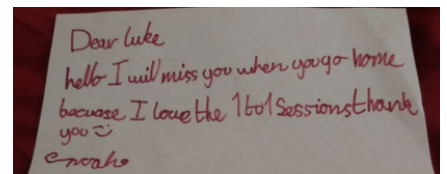 Dear luke
hello I will miss you when you go home
becuase I love the 1 to 1 Sessions thank
you
noah